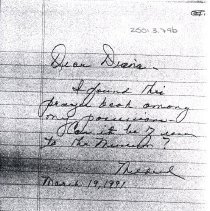 2001.3.79b
Dear Diana
I found this
prayer book among
my possessions.
Can it be
to the Museum?
March 19, 1991